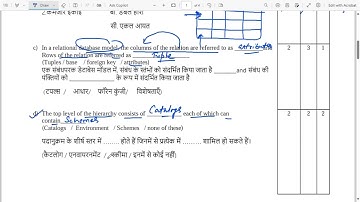 2. कमजोर इकाई
सी. एकल आयत
c) In a relational database model, the columns of the relation are referred to as attributes
Rows of the relation are referred as Tuple
(Tuples / base / foreign key / attributes)
एक संबंधपरक डेटाबेस मॉडल में, संबंध के स्तंभों को संदर्भित किया जाता है ______ और संबंध की
पंक्तियों को ............ के रूप में संदर्भित किया जाता है
(टपल्स / आधार/ फॉरेन कुंजी/ विशेषताएँ)
2 3 1
d) The top level of the hierarchy consists of Catalogs each of which can
contain Schemes
(Catalogs / Environment / Schemes / none of these)
पदानुक्रम के शीर्ष स्तर में ........ होते हैं जिनमें से प्रत्येक में ........ शामिल हो सकते हैं।
(कैटलॉग / एनवायरनमेंट / स्कीमा / इनमें से कोई नहीं)
2 2 2